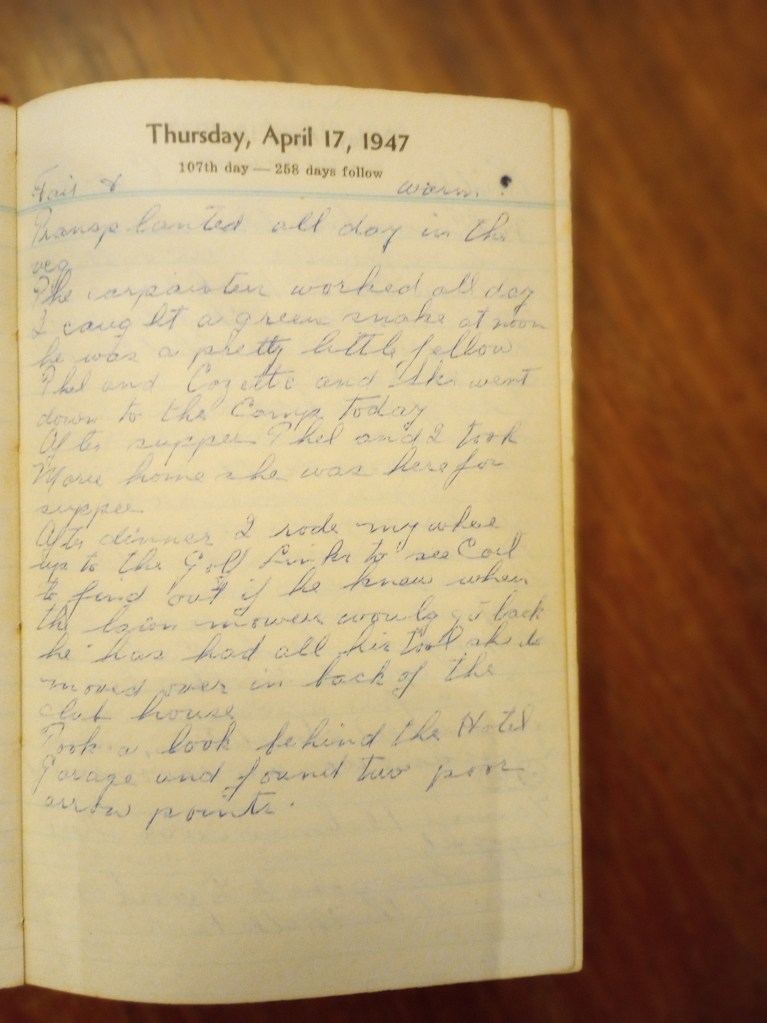 Thursday, April 17, 1947
107th day — 258 days follow
Fair & warm.
Transplanted all day in the
veg
The carpainter worked all day
I caught a green snake at noon
he was a pretty little fellow
Phel and Cozette and went
down to the Camp today
After supper Phel and I took
Marie home she was here for
supper
After dinner I rode my whee
up to the Golf Links to see Carl
to find out if he knew when
the lawn mowers would go back
he has had all his tool sheds
moved over in back of the
club house
Took a look behind the Hotel
Garage and found two poor
arrow points.